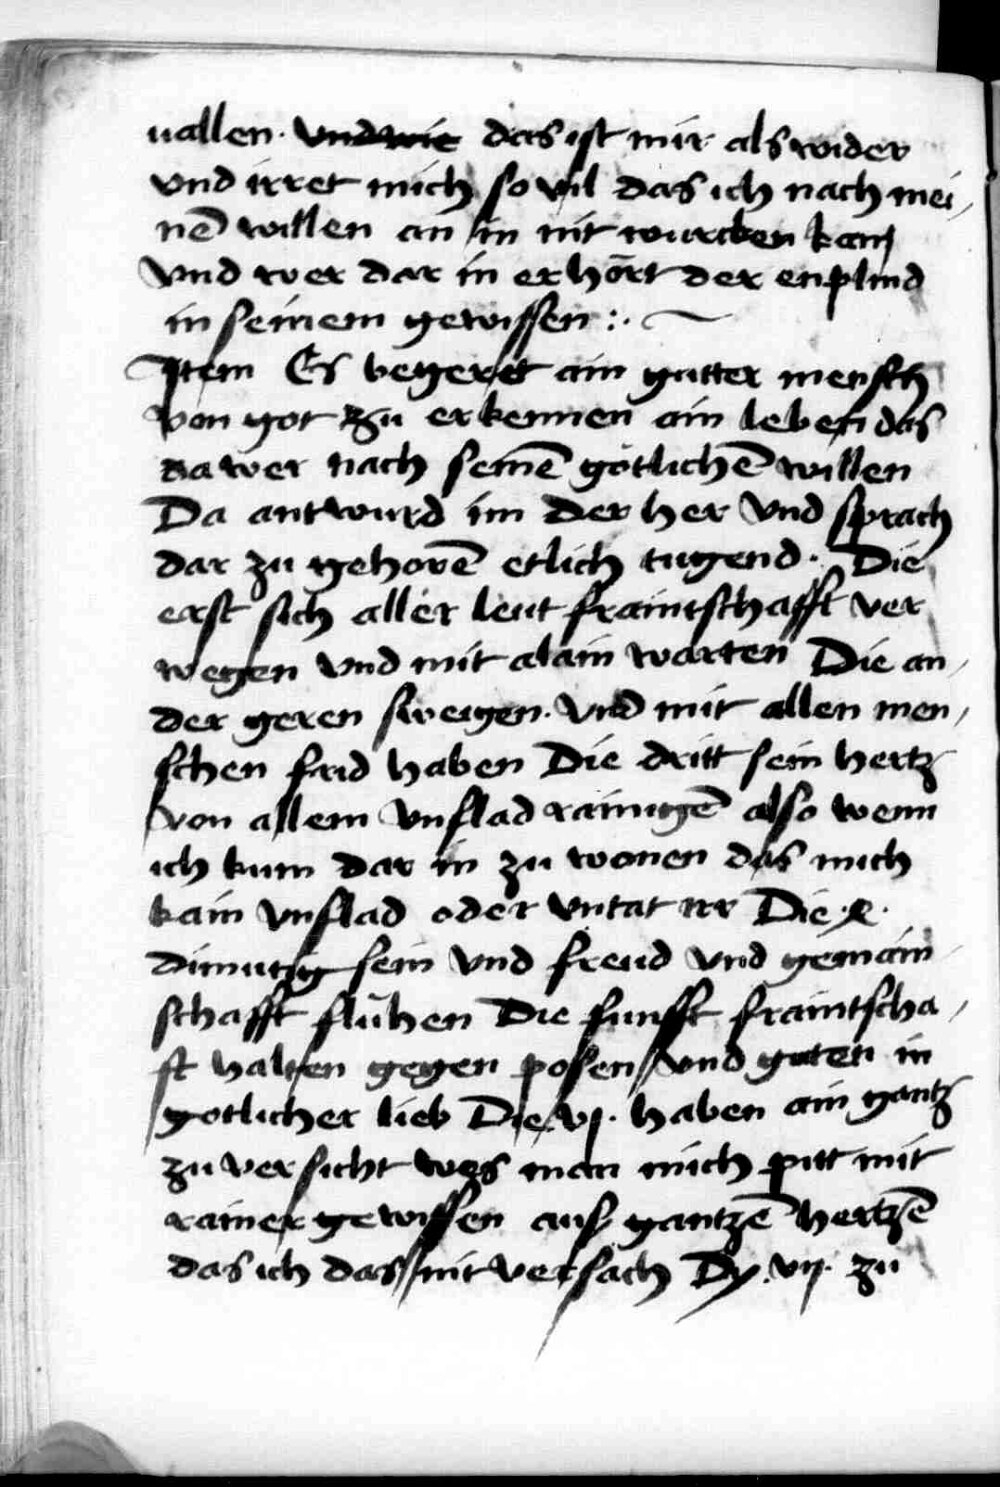 uallen. vnd wie das ist mir als wider
vnd irret mich so vil das ich nach mei-
nē willen an in nit wurcken kan
Vnd wer dar in erhört der enplind
in seinem gewissen :.
Item Es begeret ain gutter mensch
von got zu erkennen ain leben das
da wer nach seinē götlichē willen
Da antwurd im der her Vnd sprach
dar zu gehorē etlich tugend. Die
erst sich aller leut fraintschafft ver
wegen vnd mit alain warten Die an-
der geren sweigen. Vnd mit allen men-
schen frid haben Die dritt sein hertz
von allem vnflad rainigē also wenn
ich kum dar in zu wonen das mich
kain vnflad oder vntat irr Die
dimutig sein vnd freud vnd gemain
schafft flühen Die funfft fraintscha-
ft halten gegen posen vnd guten in
gotlicher lieb Die vj. haben ain gantz
zu versicht wes man mich pitt mit
rainer gewissen aus gantzē hertzē
das ich das nit versach Dy. vij. zu